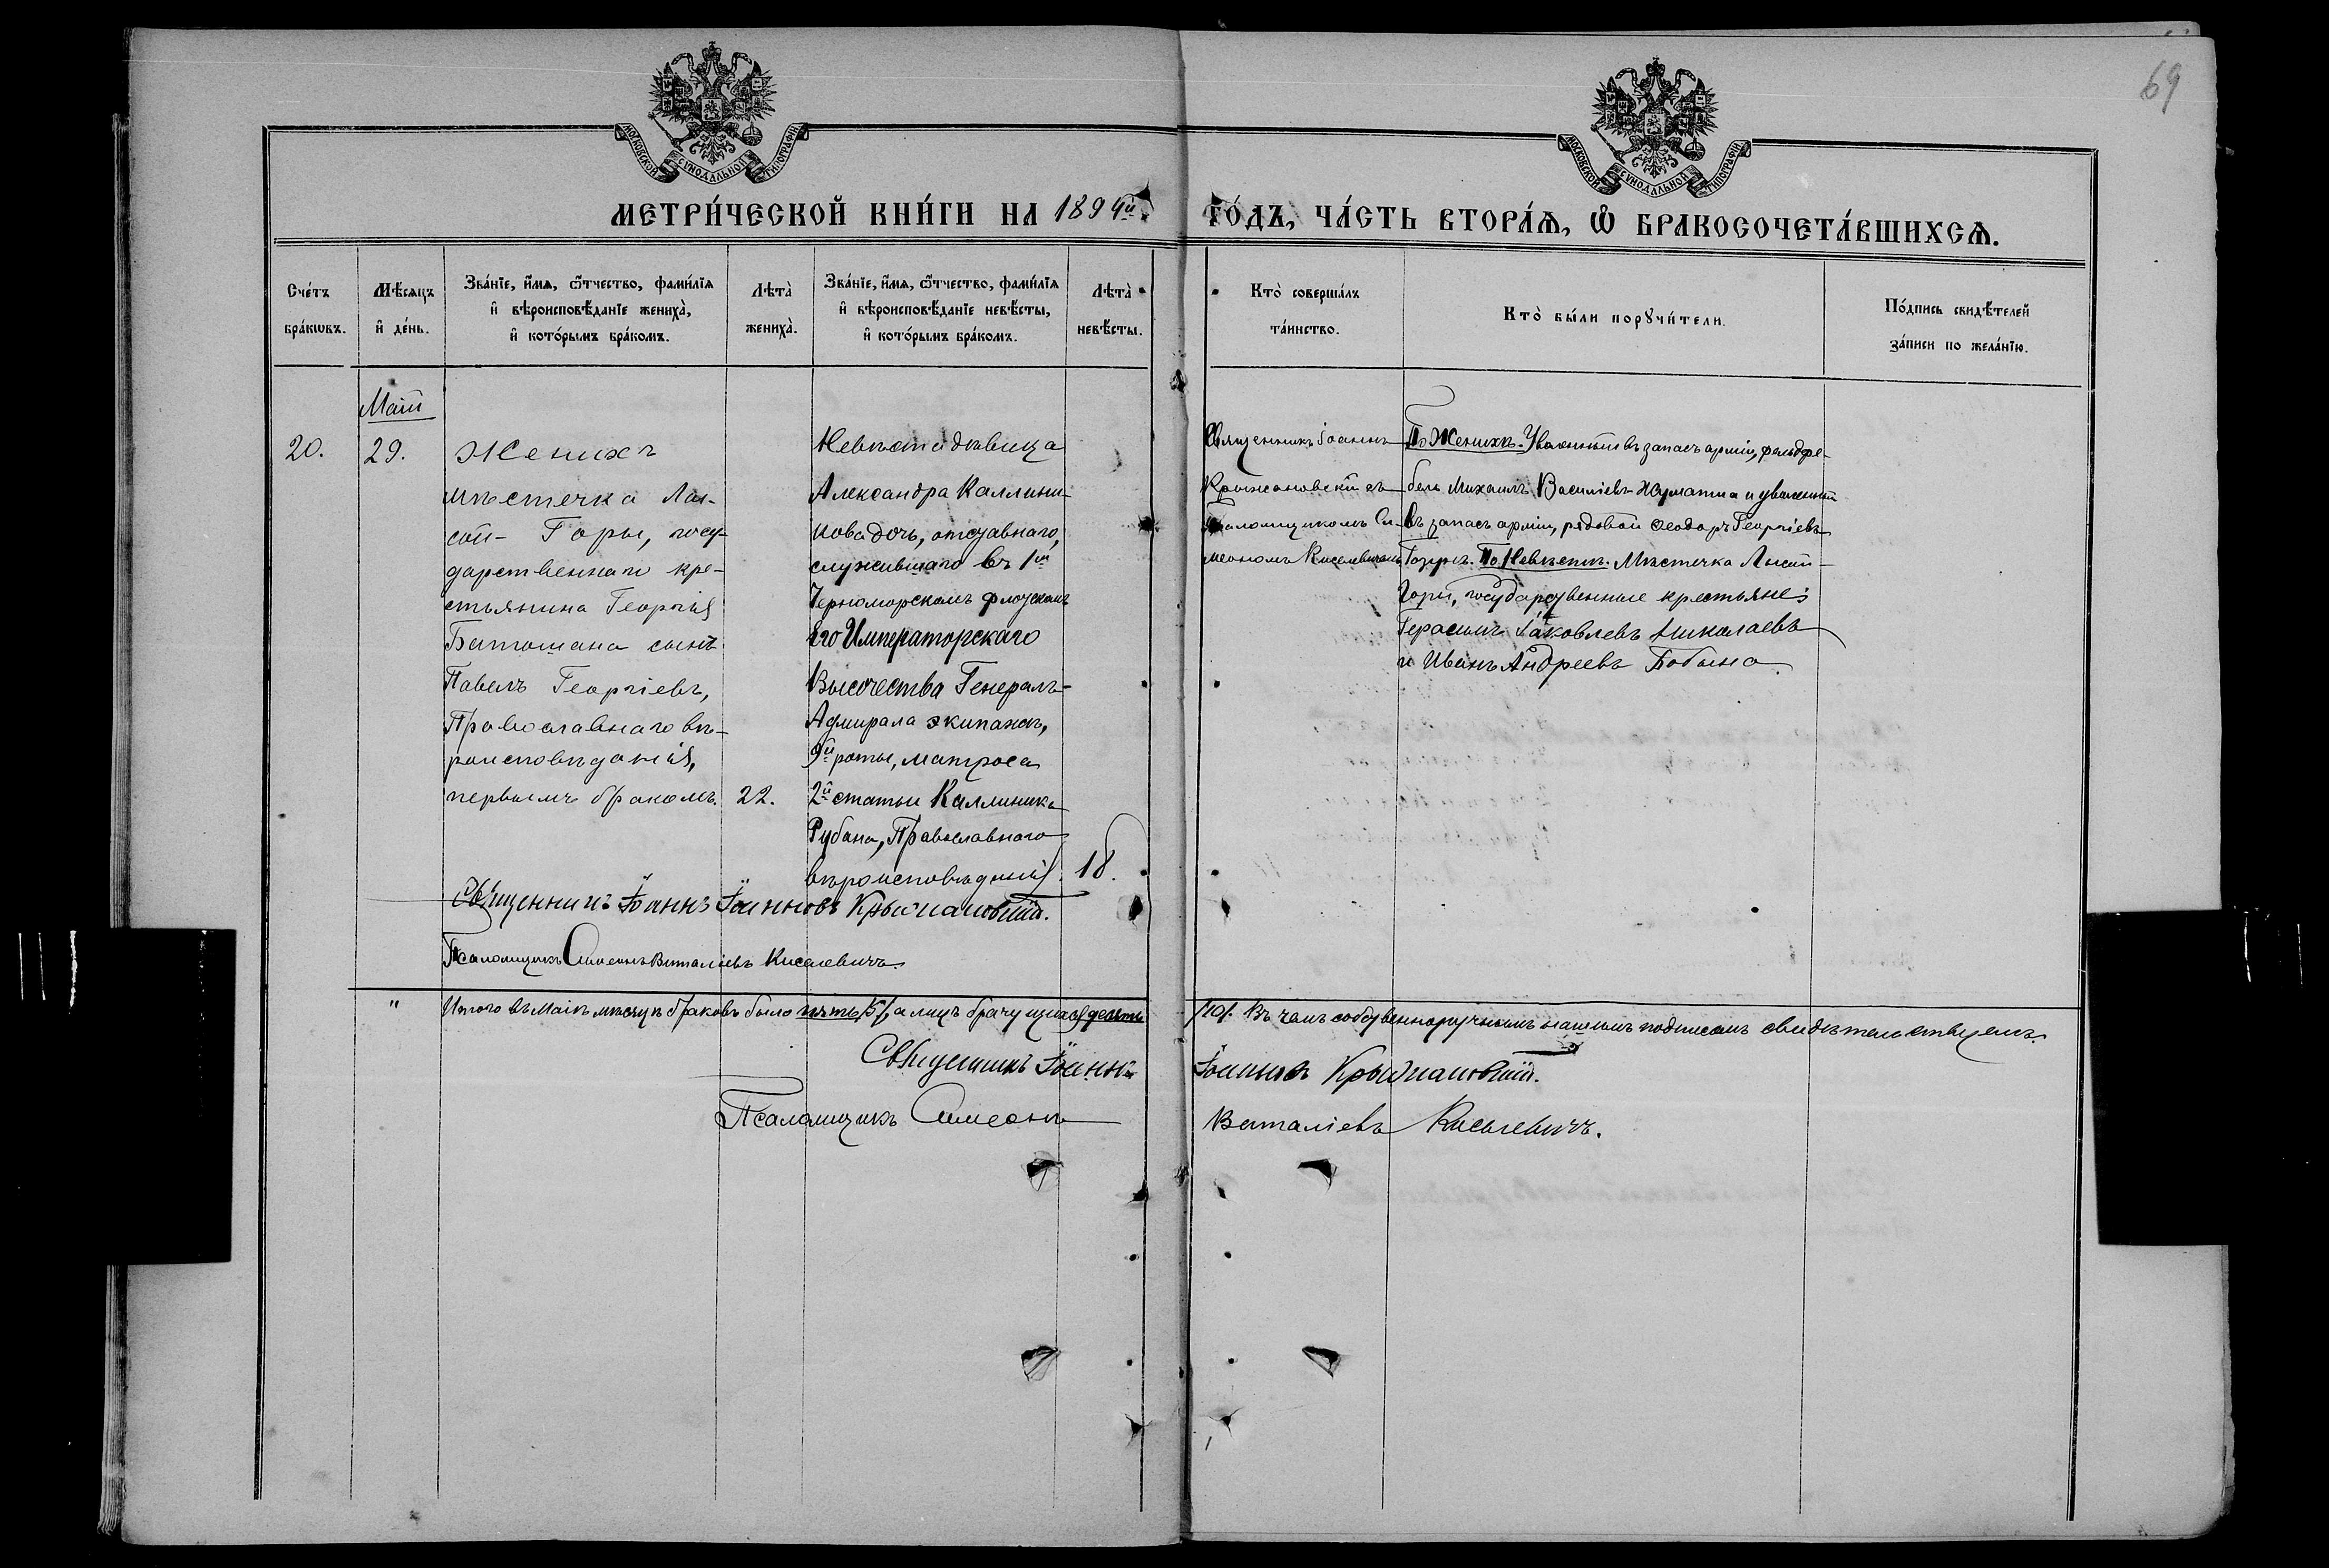 69
МОСКОВСКОЙ СѴНОДАЛЬНОЙ ТИПОГРАФІИ
МОСКОВСКОЙ СѴНОДАЛЬНОЙ ТИПОГРАФІИ
МЕТРИ́ЧЕСКОЙ КНИ́ГИ НА 1894й ГО́ДЪ, ЧА́СТЬ ВТОРА́Ѧ, Ѽ БРАКОСОЧЕТА́ВШИХСѦ.
Сче́тъ
бра́кѡвъ.
Мѣ́сѧцъ
и҆ де́нь.
Зва́нїе, и҆́мѧ, ѻ҆́тчество, фами́лїѧ
и҆ вѣроисповѣ́данїе жениха̀,
и҆ кото́рымъ бра́комъ.
Лѣта̀
жениха̀.
Зва́нїе, и҆́мѧ, ѻ҆́тчество, фами́лїѧ
и҆ вѣроисповѣ́данїе невѣ́сты,
и҆ кото́рымъ бра́комъ.
Лѣта̀
невѣ́сты.
Кто̀ соверша́лъ
та́инство.
Кто̀ бы́ли порꙋчи́тели.
По́дпись свидѣ́телей
за́писи по жела́нїю.
20.
Май
29.
Женихъ
мѣстечка Лы-
сой- Горы, госу-
дарственнаго кре-
стьянина Георгія
Батошана сынъ
Павелъ Георгіевъ,
Православнаго вѣ-
роисповѣданія,
первымъ бракомъ.
22.
Невѣста дѣвица
Александра Каллини-
кова дочь, отставнаго,
служившаго въ 1м
Черноморскомъ флотскомъ
Его Императорскаго
Высочества Генералъ-
Адмирала экипажѣ,
9й роты, матроса
2й статьи Каллиника
Рубана, Православнаго
вѣроисповѣданія.
18.
Священникъ Іоаннъ
Крыжановскій съ
Псаломщикомъ Си-
меономъ Киселевичемъ
По Женихѣ. Уволенный въ запасъ арміи, фельдфе-
бель Михаилъ Василіевъ и уволенный
въ запасъ арміи, рядовой Ѳеодоръ Георгіевъ
По Невѣстѣ. Мѣстечка Лысой-
Горы, государственные крестьяне:
Герасимъ Іаковлевъ Николаевъ
и Иванъ Андреевъ Бобына.
Священникъ Іоаннъ Іоанновъ Крыжановскій.
Псаломщикъ Симеонъ Виталіевъ Киселевичъ.
" Итого въ Маѣ мѣсяцѣ браковъ было пять /5/, а лицъ брачущихся десять /10/. Въ чемъ собственноручнымъ нашимъ подписомъ свидѣтельствуемъ.
Священникъ Іоаннъ Іоанновъ Крыжановскій.
Псаломщикъ Симеонъ Виталіевъ Киселевичъ.